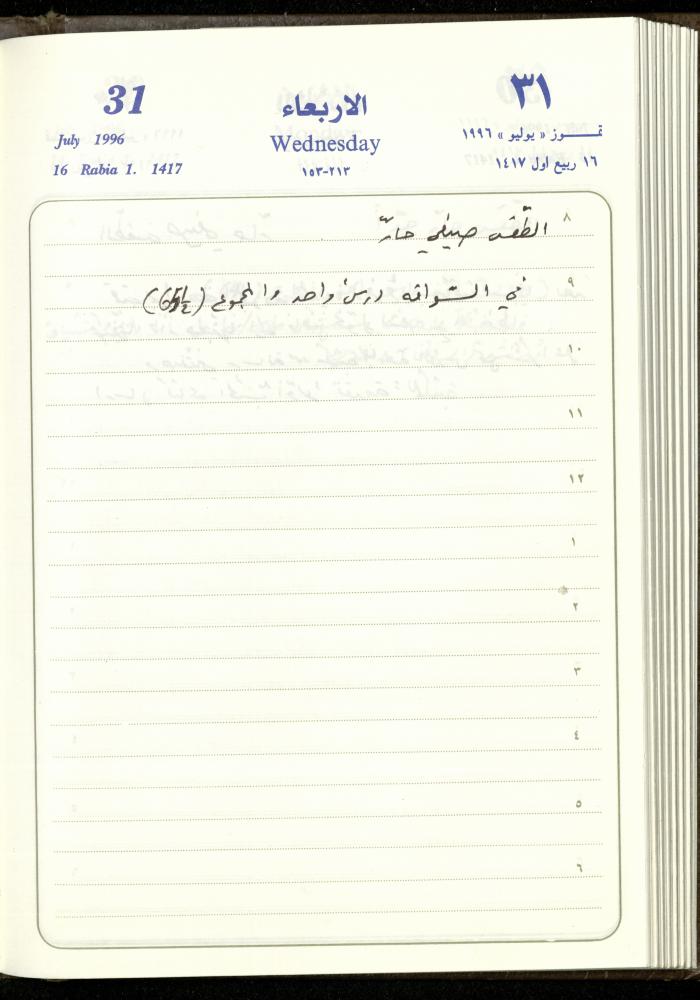 31 الاربعاء ٣١
July 1996 Wednesday تمـــوز « يوليو » ١٩٩٦
16 Rabia 1. 1417 ٢١٣-١٥٣ ١٦ ربيع اول ١٤١٧
٨ الطقس صيفي حارّ
٩ في السواقه درس واحد والمجموع
١٠
١١
١٢
١
٢
٣
٤
٥
٦